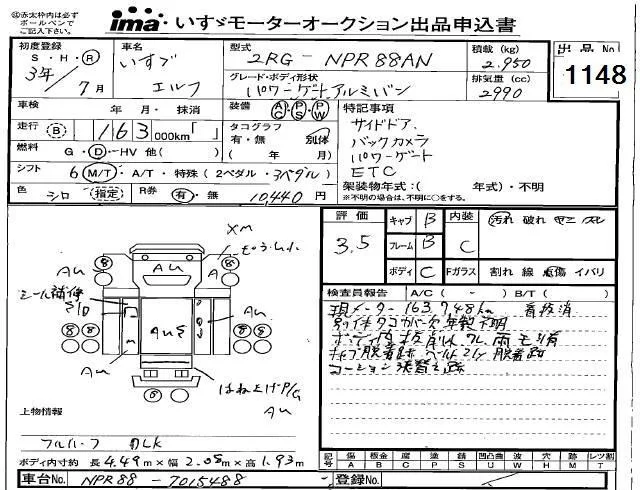 ◎赤太枠内は必ず
ボールペンで
ご記入下さい。
ima いすゞモーターオークション出品申込書
初度登録
S・H・R
3年/7月
車名
いすゞ
エルフ
型式
2RG-NPR88AN
積載 (kg)
2,950
出品No
1148
グレード・ボディ形状
パワーゲートアルミバン
排気量 (cc)
2990
車検 年・月・抹消
装備 AC PS PW
特記事項
サイドドア、
バックカメラ
パワーゲート
ETC
走行 B 163 000km「 」
タコグラフ
有・無 別体
( 年 月)
燃料 G・D・HV 他( )
シフト 6 M/T・A/T・特殊(2ペダル・3ペダル)
架装物年式:( 年式)・不明
※不明の場合は、不明に○をする。
色 シロ 指定
R券 有・無 10,440円
評価 3.5
キャブ B
フレーム B
ボディ C
内装 C
Fガラス
汚れ 破れ
割れ 線 点傷 イバリ
検査員報告 A/C(-) B/T( )
現メーター163,748km
別体タコ
コーション
XM
AU
AU
シール補修
AU
AU
AU
はねあげP/G
AU
上物情報
フルハーフ
ボディ内寸約 長4.49m×幅2.08m×高1.93m
記号 傷A 板金B 腐C 塗P 錆S 凹凸曲U 波W 穴H 跡M レンズ割T
車台No. NPR88-7015488
登録No.